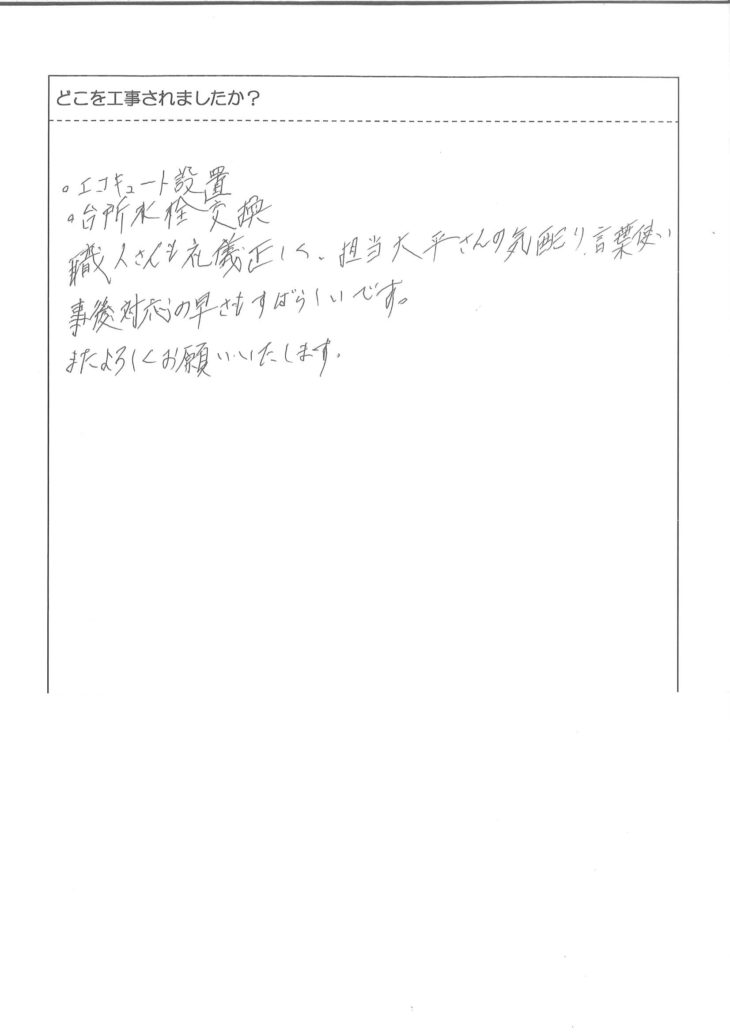 どこを工事されましたか？
。エコキュート設置
。台所水栓交換
職人さんも礼儀正しく、担当大平さんの気配り、言葉使い
事後対応の早さもすばらしいです。
またよろしくお願いいたします。